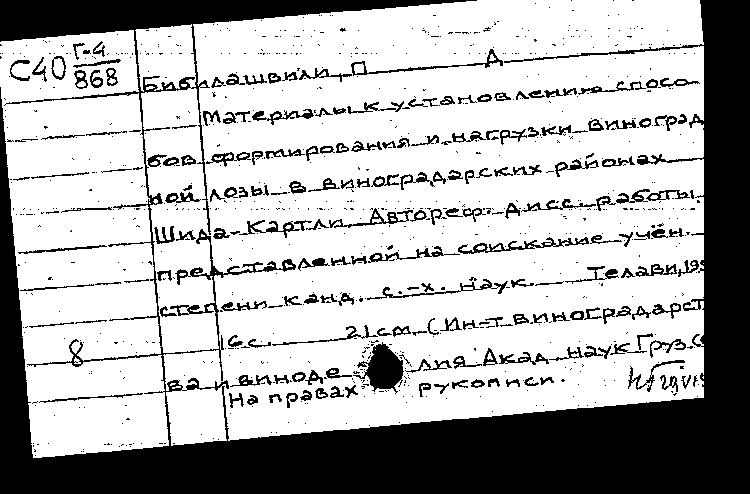 С40 Г-4
868
Бибилашвили, П Д
Материалы к установлению спосо
бов формирования и нагрузки виноград
ной лозы в виноградарских районах
Шида-Картли. Автореф. дисс. работы,
представленной на соискание учён.
степени канд. с.-х. наук. Телави, 195
16 с. 21 см. (Ин-т виноградарст
8
ва и виноде лия Акад. наук Груз.
На правах рукописи.